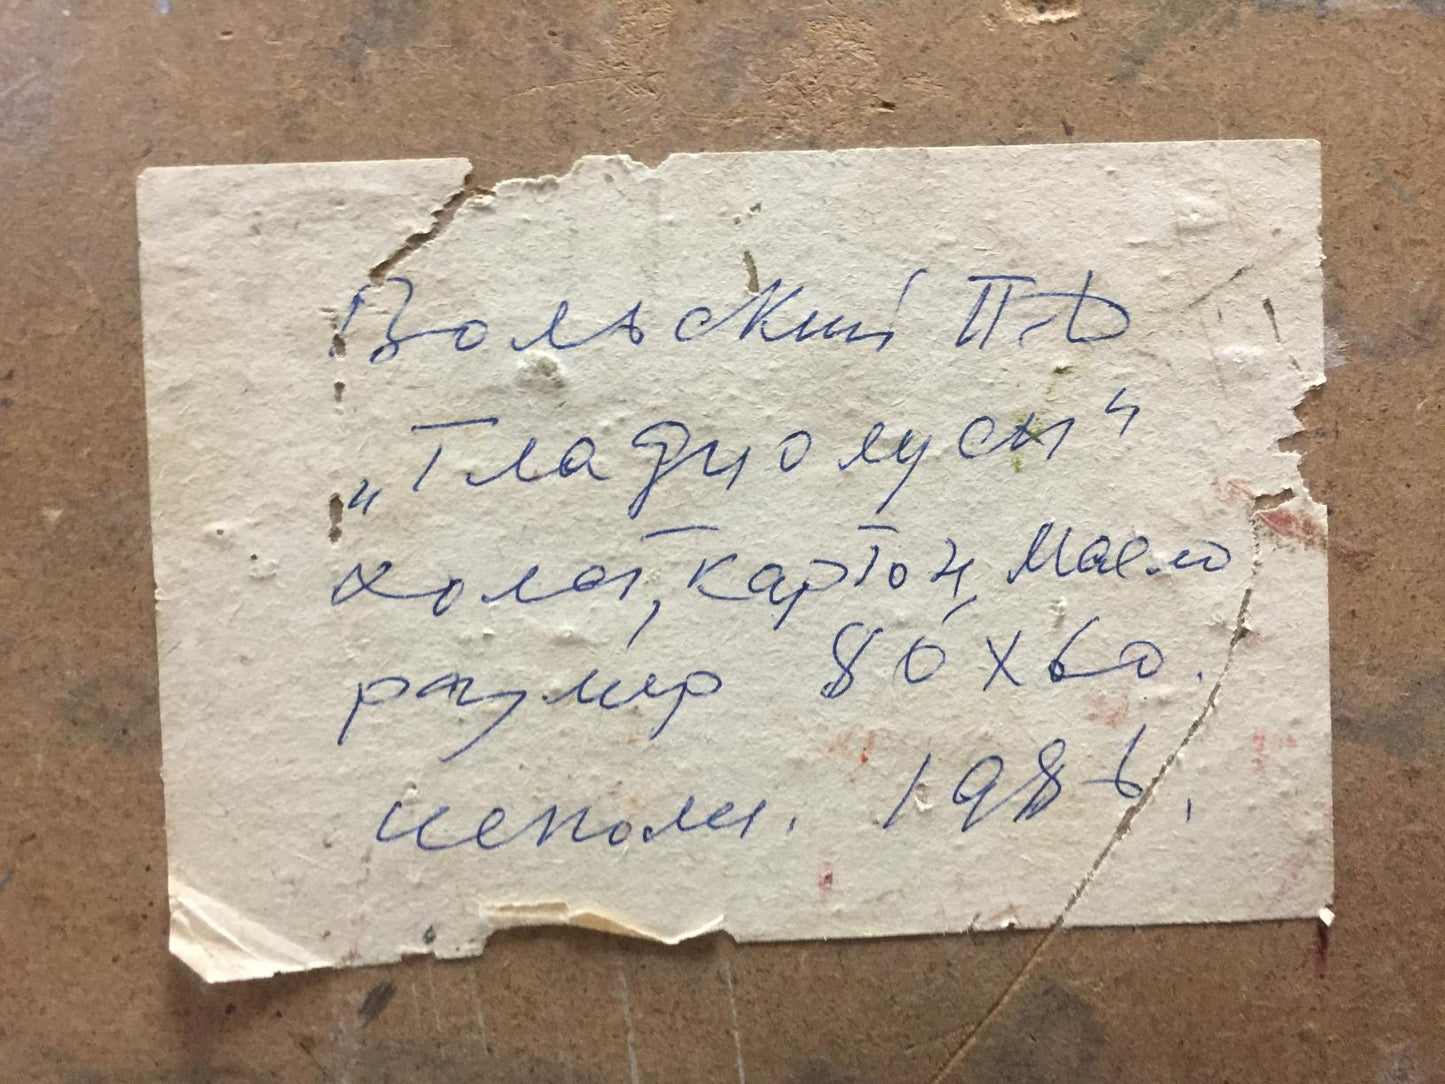 Вольский П.Д
„Гладиолусы“
холст, картон, масло
размер 80х60.
исполн. 1986.